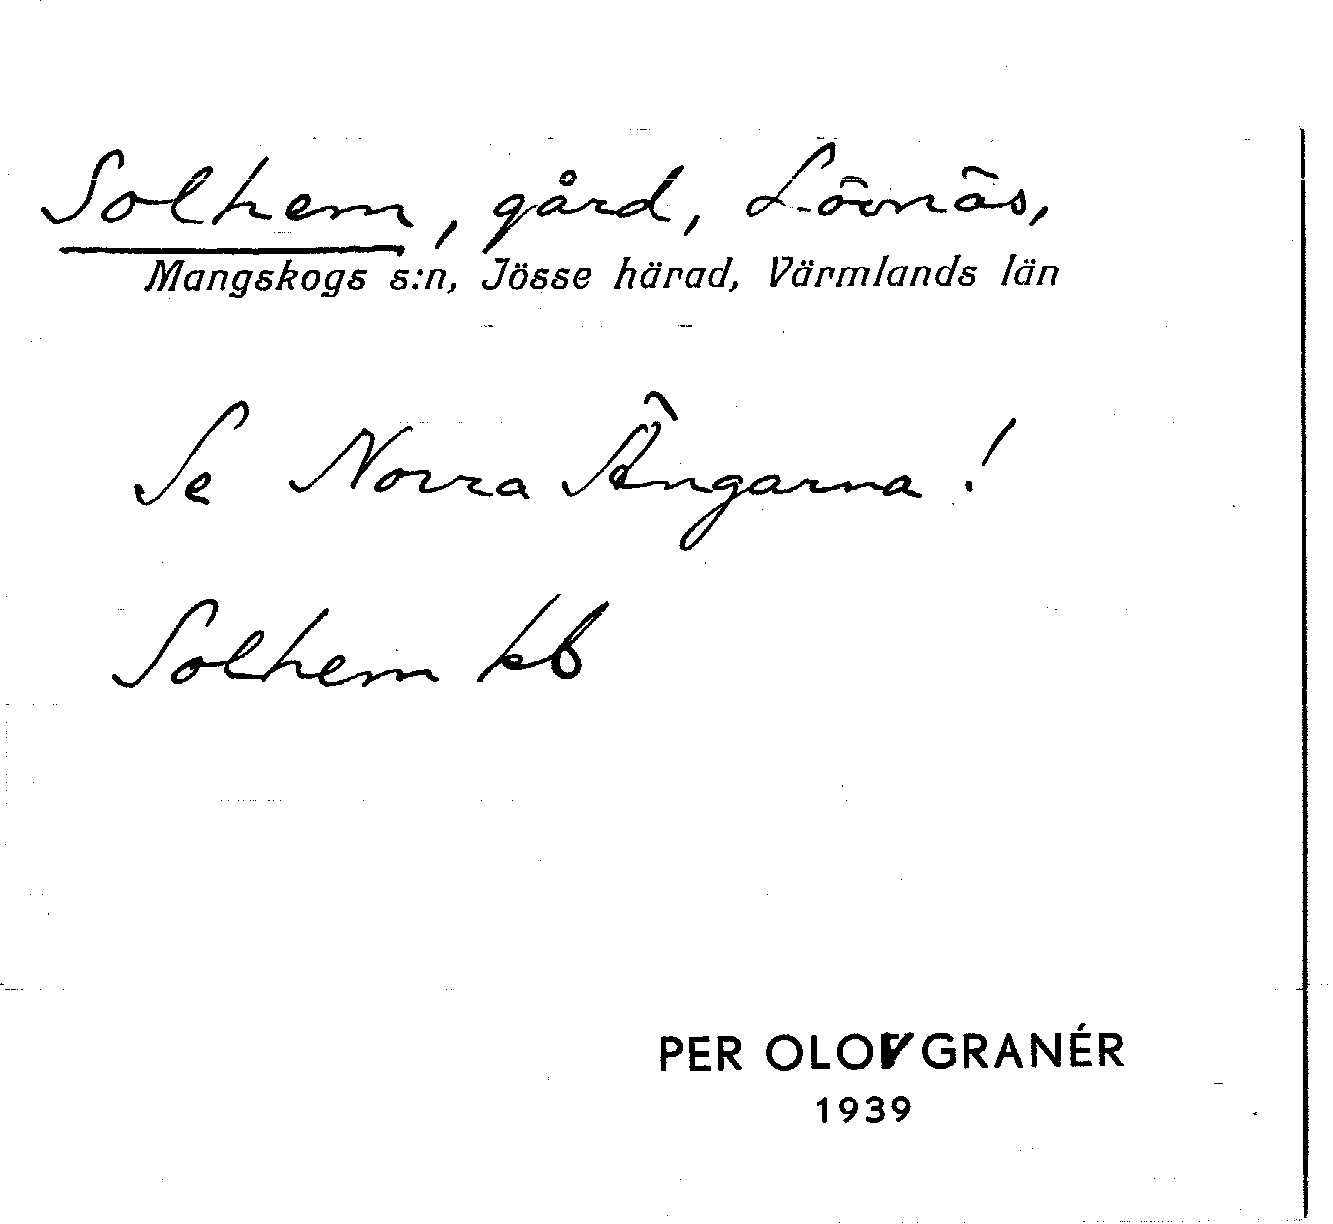 Solhem, gård, Lövnäs,
Mangskogs s:n, Jösse härad, Värmlands län
Se Norra Ängarna!
Solhem kb
PER OLOV GRANÉR
1939